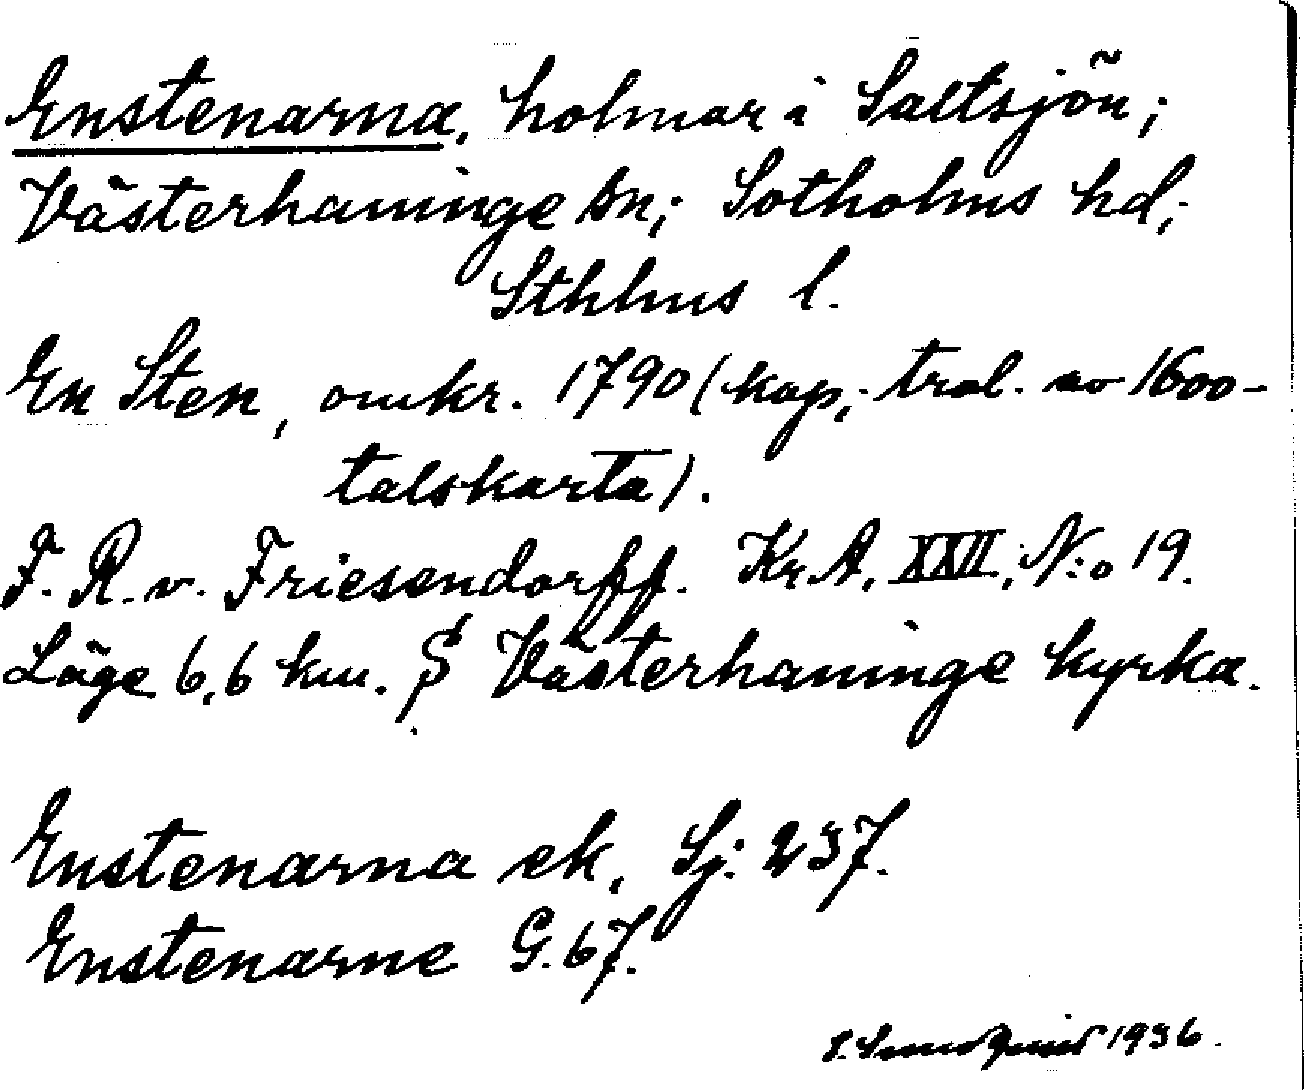 Enstenarna, holmar i Saltsjön;
Västerhaninge sn; Sotholms hd;
Sthlms l.
En Sten, omkr. 1790 (kop; trol. av 1600-
talskarta).
F. R. v. Friesendorff. Kr. A. XXII, N:o 19.
Läge 6,6 km. S Västerhaninge kyrka.
Enstenarna ek, Sj: 237.
Enstenarne G. 67.
1936.